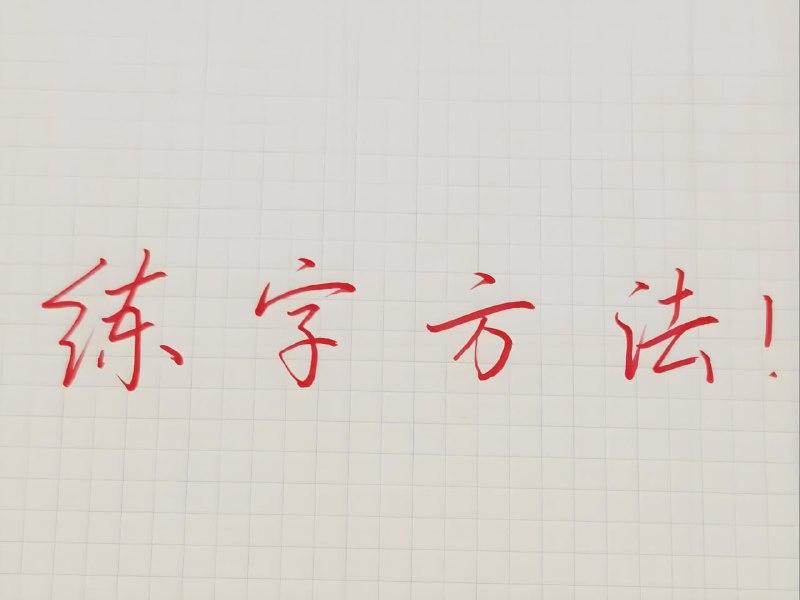 练字方法!